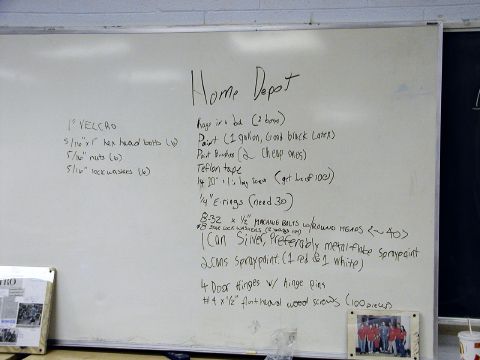 Home Depot
1" VELCRO
5/16" x 1" hex head bolts (6)
5/16" nuts (6)
5/16" lock washers (6)
Rags in a box (2 boxes)
Paint (1 gallon, Good black Latex)
Paint Brushes (2 cheap ones)
Teflon tape
1/4 20" (get box of 100)
1/4" E-rings (need 30)
8-32 x 1/2" MACHINE BOLTS W/ROUND HEADS (~40)
#8 LOCK WASHERS
1 Can Silver, Preferably metal-flake spraypaint
2 cans spraypaint (1 red & 1 white)
4 Door Hinges w/ hinge pins
#4 x 1/2" flat head wood screws (100 pieces)